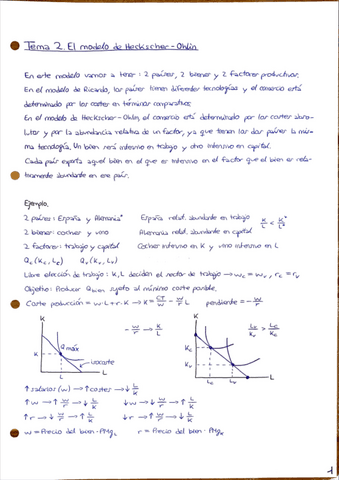 Tema 2. El modelo de Heckscher-Ohlin
En este modelo vamos a tener: 2 países, 2 bienes y 2 factores productivos.
En el modelo de Ricardo, los países tienen diferentes tecnologías y el comercio está
determinado por los costes en términos comparativos.
En el modelo de Heckscher-Ohlin, el comercio está determinado por los costes abso-
lutos y por la abundancia relativa de un factor, ya que tienen las dos países la mis-
ma tecnología. Un bien será intensivo en trabajo y otro intensivo en capital.
Cada país exporta aquel bien en el que es intensivo en el factor que el bien es rela-
tivamente abundante en ese país.
Ejemplo.
2 países: España y Alemania* España relat. abundante en trabajo K/L < K*/L*
2 bienes: coches y vino Alemania relat. abundante en capital
2 factores: trabajo y capital Coches intensivo en K y vino intensivo en L
Qc (Kc, Lc) Qv (Kv, Lv)
Libre elección de trabajo: K, L deciden el sector de trabajo → wc = wv, rc = rv
Objetivo: Producir Q sujeto al mínimo coste posible.
Coste producción = w·L + r·K → K = CT/w - w/r L pendiente = - w/r
K Q máx K isocoste L L
- w/r → K/L
K Kc Kv Lc Lv L
Lv/Kv > Lc/Kc
↑ salarios (w) → ↑ costes → ↓ L/K
↑ w → ↑ w/r → ↓ L/K ↓ w → ↓ w/r → ↑ L/K
↑ r → ↓ w/r → ↑ L/K ↓ r → ↑ w/r → ↓ L/K
w = Precio del bien · PMgL r = Precio del bien · PMgK
1